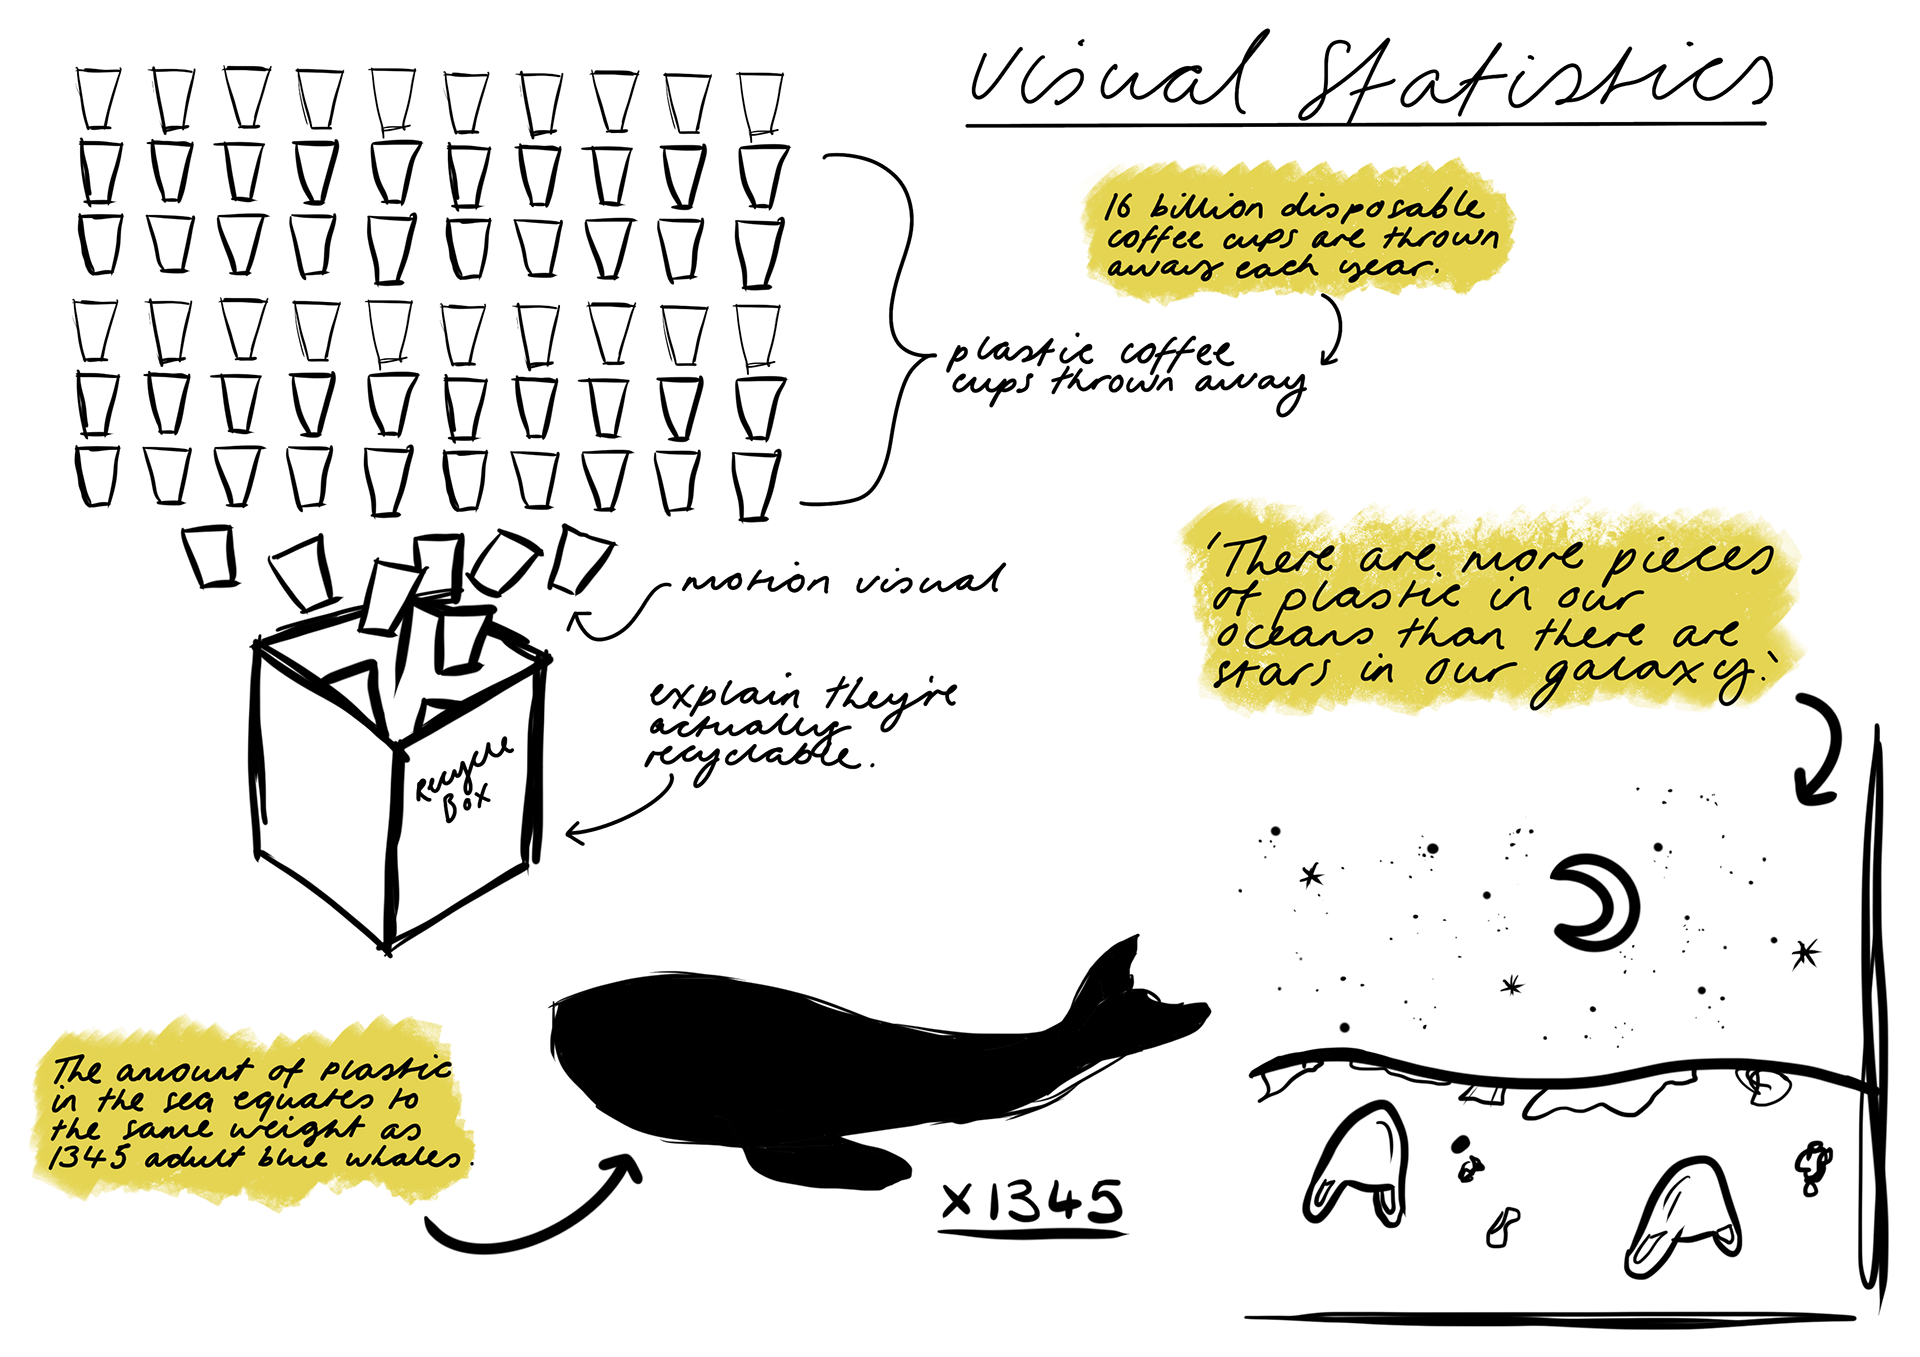 Visual Statistics
16 billion disposable
coffee cups are thrown
away each year.
plastic coffee
cups thrown away
motion visual
explain they're
actually
recyclable.
Recycle
Box
'There are more pieces
of plastic in our
oceans than there are
stars in our galaxy.'
The amount of plastic
in the sea equates to
the same weight as
1345 adult blue whales.
x1345